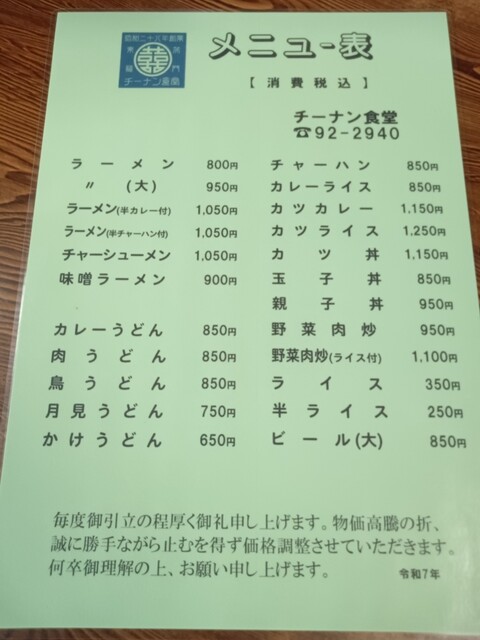 昭和二十八年創業
チーナン食堂
メニュー表
【消費税込】
チーナン食堂
☎92-2940
ラーメン 800円
〃 (大) 950円
ラーメン(半カレー付) 1,050円
ラーメン(半チャーハン付) 1,050円
チャーシューメン 1,050円
味噌ラーメン 900円
カレーうどん 850円
肉うどん 850円
鳥うどん 850円
月見うどん 750円
かけうどん 650円
チャーハン 850円
カレーライス 850円
カツカレー 1,150円
カツライス 1,250円
カツ丼 1,150円
玉子丼 850円
親子丼 950円
野菜肉炒 950円
野菜肉炒(ライス付) 1,100円
ライス 350円
半ライス 250円
ビール(大) 850円
毎度御引立の程厚く御礼申し上げます。物価高騰の折、
誠に勝手ながら止むを得ず価格調整させていただきます。
何卒御理解の上、お願い申し上げます。
令和7年